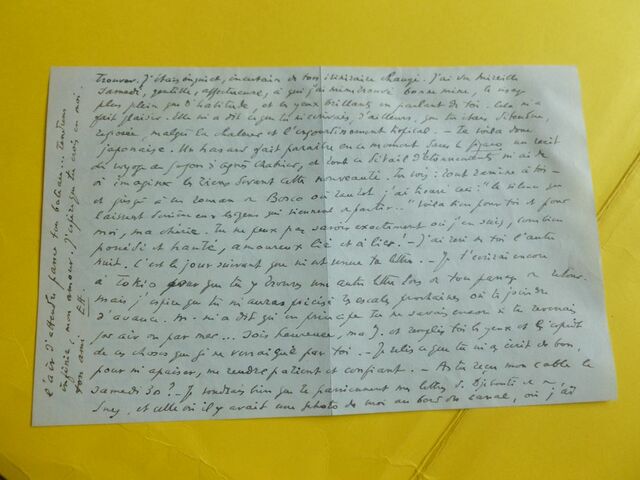 trouver. J'étais inquiet, incertain de ton itinéraire changé. J'ai vu Mireille
samedi, gentille, affectueuse, à qui j'ai même trouvé bonne mine, le visage
plus plein que d'habitude, et les yeux brillants en parlant de toi. Cela m'a
fait plaisir. Elle m'a dit ce que tu m'écrivais, d'ailleurs, que tu étais détendue,
reposée, malgré la chaleur et l'engourdissement tropical. - Te voilà donc
japonaise. Un hasard fait paraître en ce moment dans le Figaro un récit
de voyage au Japon d'après Chabrier, et dont ce détail
où j'imagine les riens devant cette nouveauté. Tu vois : tout ramène à toi -
et jusqu'à un roman de Bosco où j'ai trouvé ceci : "le silence que
laissent derrière eux les gens qui viennent de partir..." Voilà bien pour toi et pour
moi, ma chérie. Tu ne peux pas savoir exactement où j'en suis, combien
possédé et hanté, amoureux lié et à lier. - J'ai rêvé de toi l'autre
nuit. C'est le jour suivant que m'est venue ta lettre. - Je t'écrirai encore
à Tokio pour que tu y trouves une autre lettre lors de ton passage de retour.
Mais j'espère que tu m'auras précisé les escales prochaines où te joindre
d'avance. M. m'a dit qu'en principe tu ne savais encore si tu revenais
par air ou par mer... Sois heureuse, ma J. et remplis-toi les yeux et l'esprit
de ces choses que je ne verrai que par toi. - Je relis ce que tu m'as écrit de bon,
pour m'apaiser, me rendre patient et confiant. - As-tu reçu mon cable le
samedi 30 ? - Je voudrais bien que te parviennent mes lettres de Djibouti et
Suez, et celle où il y avait une photo de moi au bord du canal, où j'ai
l'air d'attendre, passer ton bateau... Tendresse
infinie, mon amour. J'espère que tu crois en moi.
ton ami